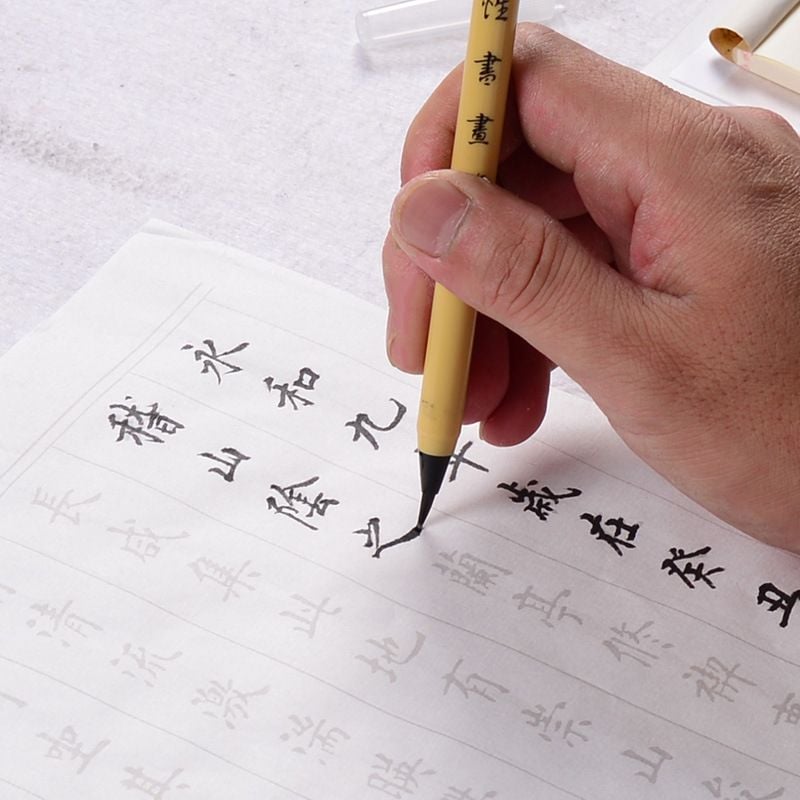 性書畫
永和九年歲在癸丑
稽山陰之蘭亭修禊
長咸集此地有崇山
清流激湍暎
坐其